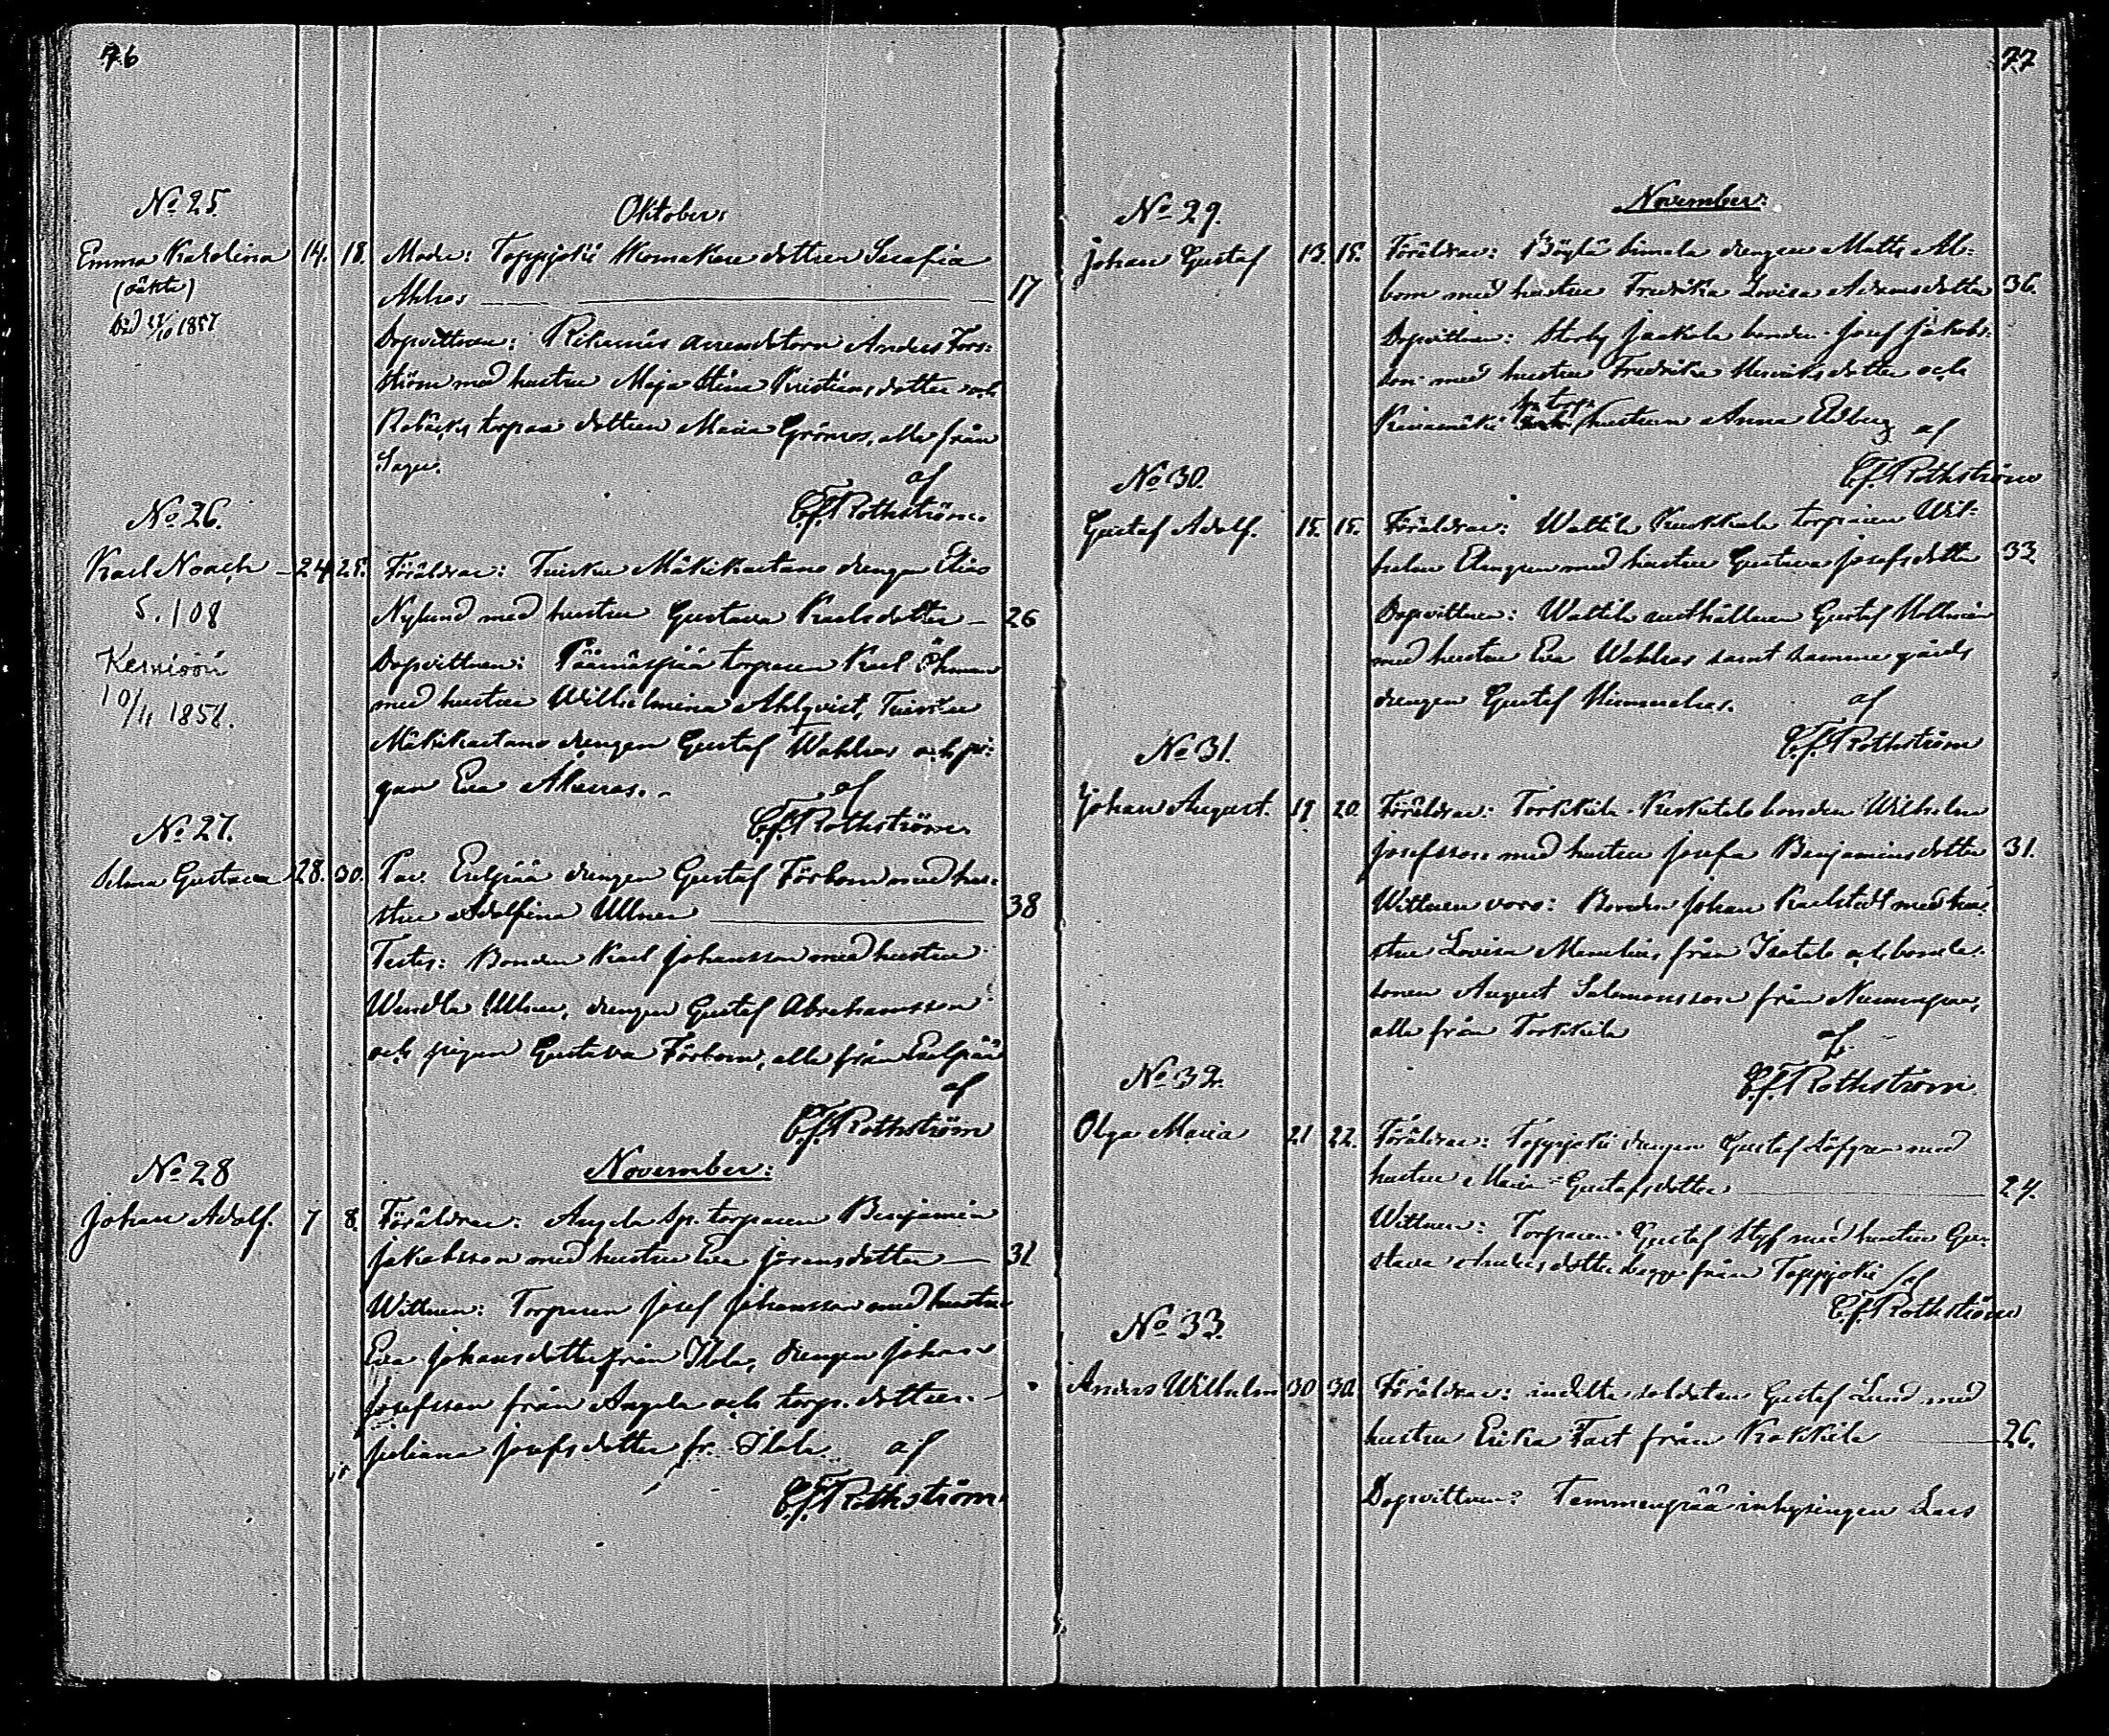 76
No 25.
Oktober:
Emma Karolina 14. 18. Moder: Toppjoki Kromakare dottren Serafia
(oäkta)
Ahlros 17
död 1857
Dopvittnen: arrendatorn Anders Fors:
ström med hustru Maja Stina Kristiansdotter och
torpare dottren Maria Grönroos, alla från
Sagu.
af
C.f. Rothström.
No 26.
Karl Noach 24 25. Föräldrar: Tuisku Mäkikartano drengen Elias
5.108
Nylund med hustru Gustava Karlsdotter 26
Kesnisöri
Dopvittnen: Päärnäspää torparen Karl Öhman
10/11 1858.
med hustru Wilhelmina Ahlqvist, Tuisku
Mäkikartano drengen Gustaf Wahlros och pi:
gan Eva
af
C.f. Rothström.
No 27.
Selma Gustava 28. 30. Par. Exelpää drengen Gustaf Förbom med hu:
stru Adolfina Ullner 38
Testes: Bonden Karl Johansson med hustru
Wendla Ullner, drengen Gustaf Abrahamsson
och pigan Gustava Förbom, alla från Exelpää
af
C.f. Rothström
No 28
November:
Johan Adolf. 7 8. Föräldrar: Angela Sp. torparen Benjamin
Jakobsson med hustru Eva Jöransdotter 31
Wittnen: Torparen Josef Johansson med hustru
Eva Johansdotter från Ilola, drengen Johan
Josefsson från Angela och torp. dottren
Juliana Josefsdotter fr. Ilola af
C.f. Rothström
77
No 29.
November:
Johan Gustaf 13. 15. Föräldrar: Böylä Simola drengen Matts Al:
bom med hustru Fredrika Lovisa Adamsdotter 36.
Dopvittnen: Storby Jaakola bonden Josef Jakobs:
son med hustru Fredrika Henriksdotter och
torp:
hustrun Anna Edberg af
C.f. Rothström
No 30.
Gustaf Adolf. 15. 15. Föräldrar: Wattila Kurkkala torparen Wil:
helm Elmgren med hustru Gustava Josefsdotter 33.
Dopvittnen: Wattila rusthållaren Gustaf
med hustru Eva Wahlros samt samma gårds
drengen Gustaf
af
C.f. Rothström
No 31.
Johan August. 19 20. Föräldrar: Torkkila Keskitalo bonden Wilhelm
Josefsson med hustru Josefa Benjaminsdotter 31.
Wittnen voro: Bonden Johan Karlstedt med hu:
stru Lovisa Manelius från Isotalo och bonde:
sonen August Salomonsson från Nummenpää,
alla från Torkkila
af
C.f. Rothström.
No 32.
Olga Maria 21 22. Föräldrar: Toppjoki drengen Gustaf Löfgren med
hustru Maria Gustafsdotter 24.
Wittnen: Torparen Gustaf Styf med hustru Gu:
stava Andersdotter begge från Toppjoki af
C.f. Rothström
No 33.
Anders Wilhelm 30 30. Föräldrar: indelta soldaten Gustaf Lund med
hustru Erika Fast från Kokkila 26.
Dopvittnen: Tammenpää inhysingen Lars